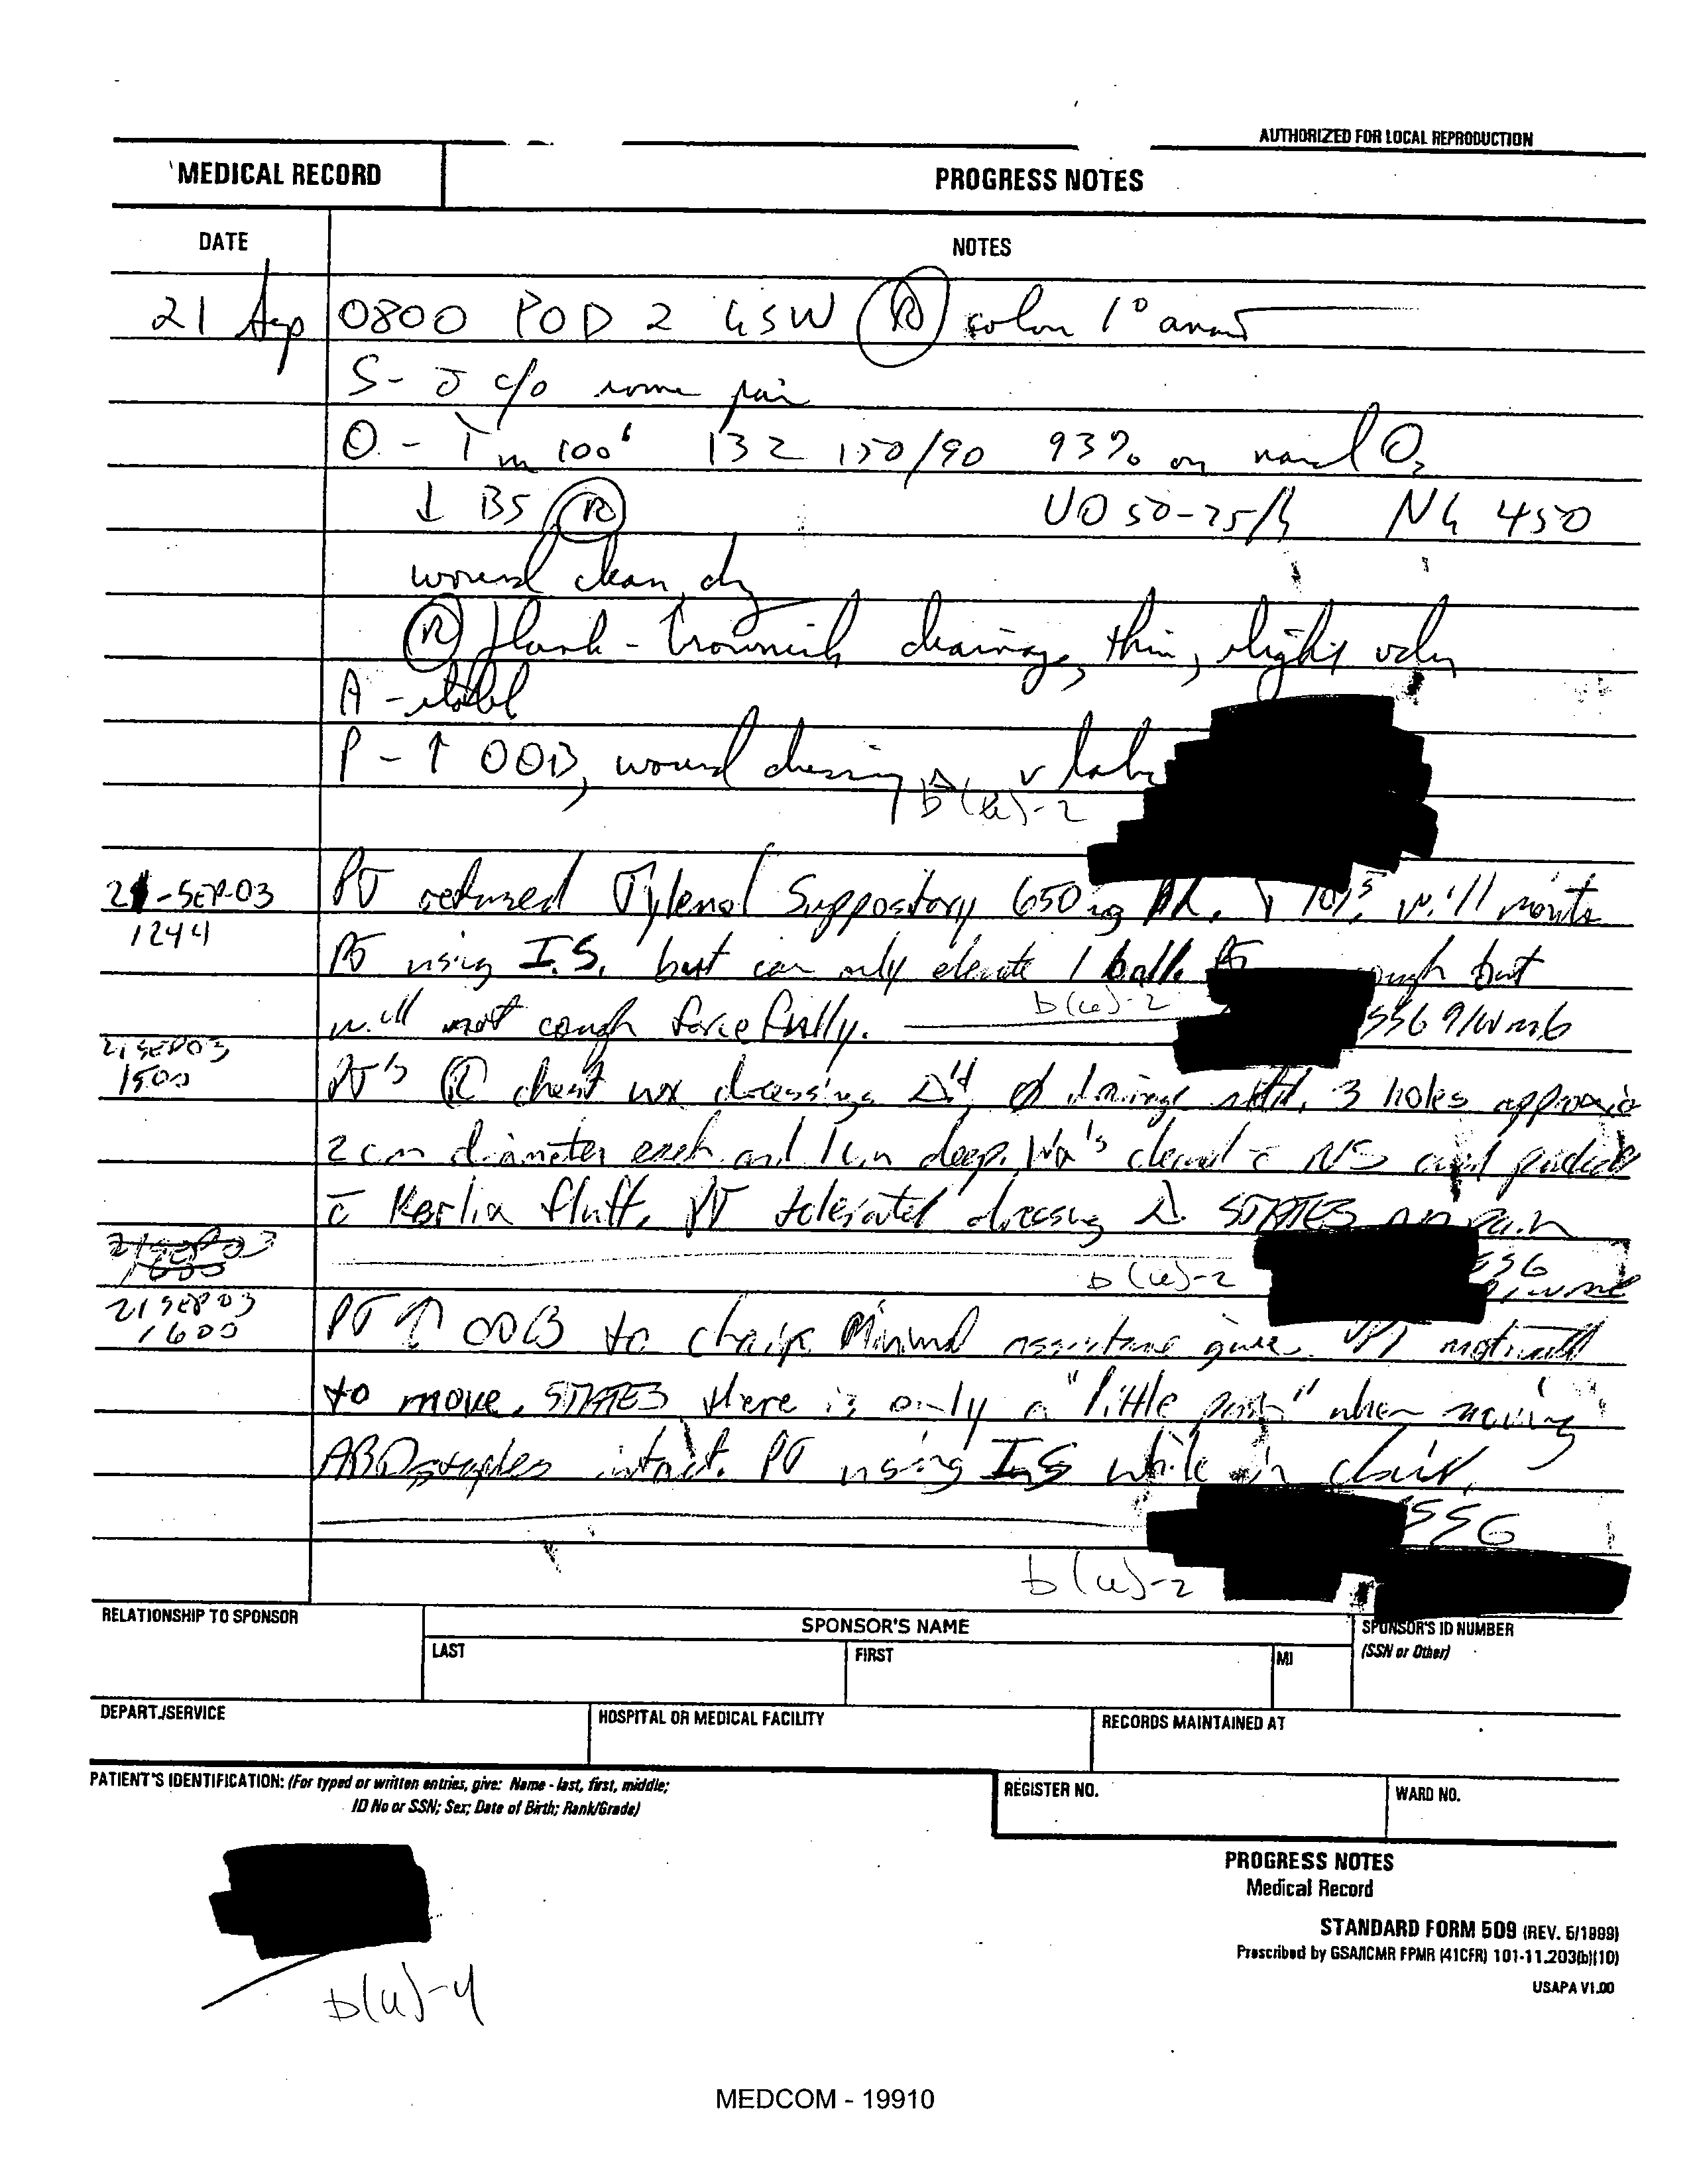 AUTHORIZED FOR LOCAL REPRODUCTION
MEDICAL RECORD
PROGRESS NOTES
DATE
NOTES
21 Sep 0800 POD 2 GSW (R) colon 1°
S- c/o some pain
O - Tm 100 132 150/90 93% on nasal O2
↓ BS (R) UO 50-75/h NG 450
wound clean, dry
(R) flank - brownish drainage, thin, slight odor
A - stable
P - ↑ OOB, wound dressing Δ, labs
b(6)-2
21-SEP-03 PT Tylenol Suppository 650 mg PR. will
1244 PT using I.S. but can only elevate 1 ball. PT cough but
will not cough forcefully. b(6)-2 SSG 91WM6
21 SEP 03
1500 PT's (R) chest wx dressings Δ'd, Ø drainage 3 holes
2 cm diameter each and 1 cm deep. Wx's c̄ NS and packed
c̄ Kerlix fluff. PT tolerated dressing Δ. STATES no pain
21 SEP 03
1600
b(6)-2 SSG
21 SEP 03
1600 PT ↑ OOB to chair. Minimal assistance given. PT motivated
to move. STATES there is only a "little pain" when moving
ABD staples intact. PT using I.S while in chair.
SSG
b(6)-2
RELATIONSHIP TO SPONSOR
SPONSOR'S NAME
SPONSOR'S ID NUMBER
(SSN or Other)
LAST
FIRST
MI
DEPART./SERVICE
HOSPITAL OR MEDICAL FACILITY
RECORDS MAINTAINED AT
PATIENT'S IDENTIFICATION: (For typed or written entries, give: Name - last, first, middle;
ID No or SSN; Sex; Date of Birth; Rank/Grade)
REGISTER NO.
WARD NO.
PROGRESS NOTES
Medical Record
STANDARD FORM 509 (REV. 5/1999)
Prescribed by GSA/ICMR FPMR (41CFR) 101-11.203(b)(10)
USAPA V1.00
b(6)-4
MEDCOM - 19910